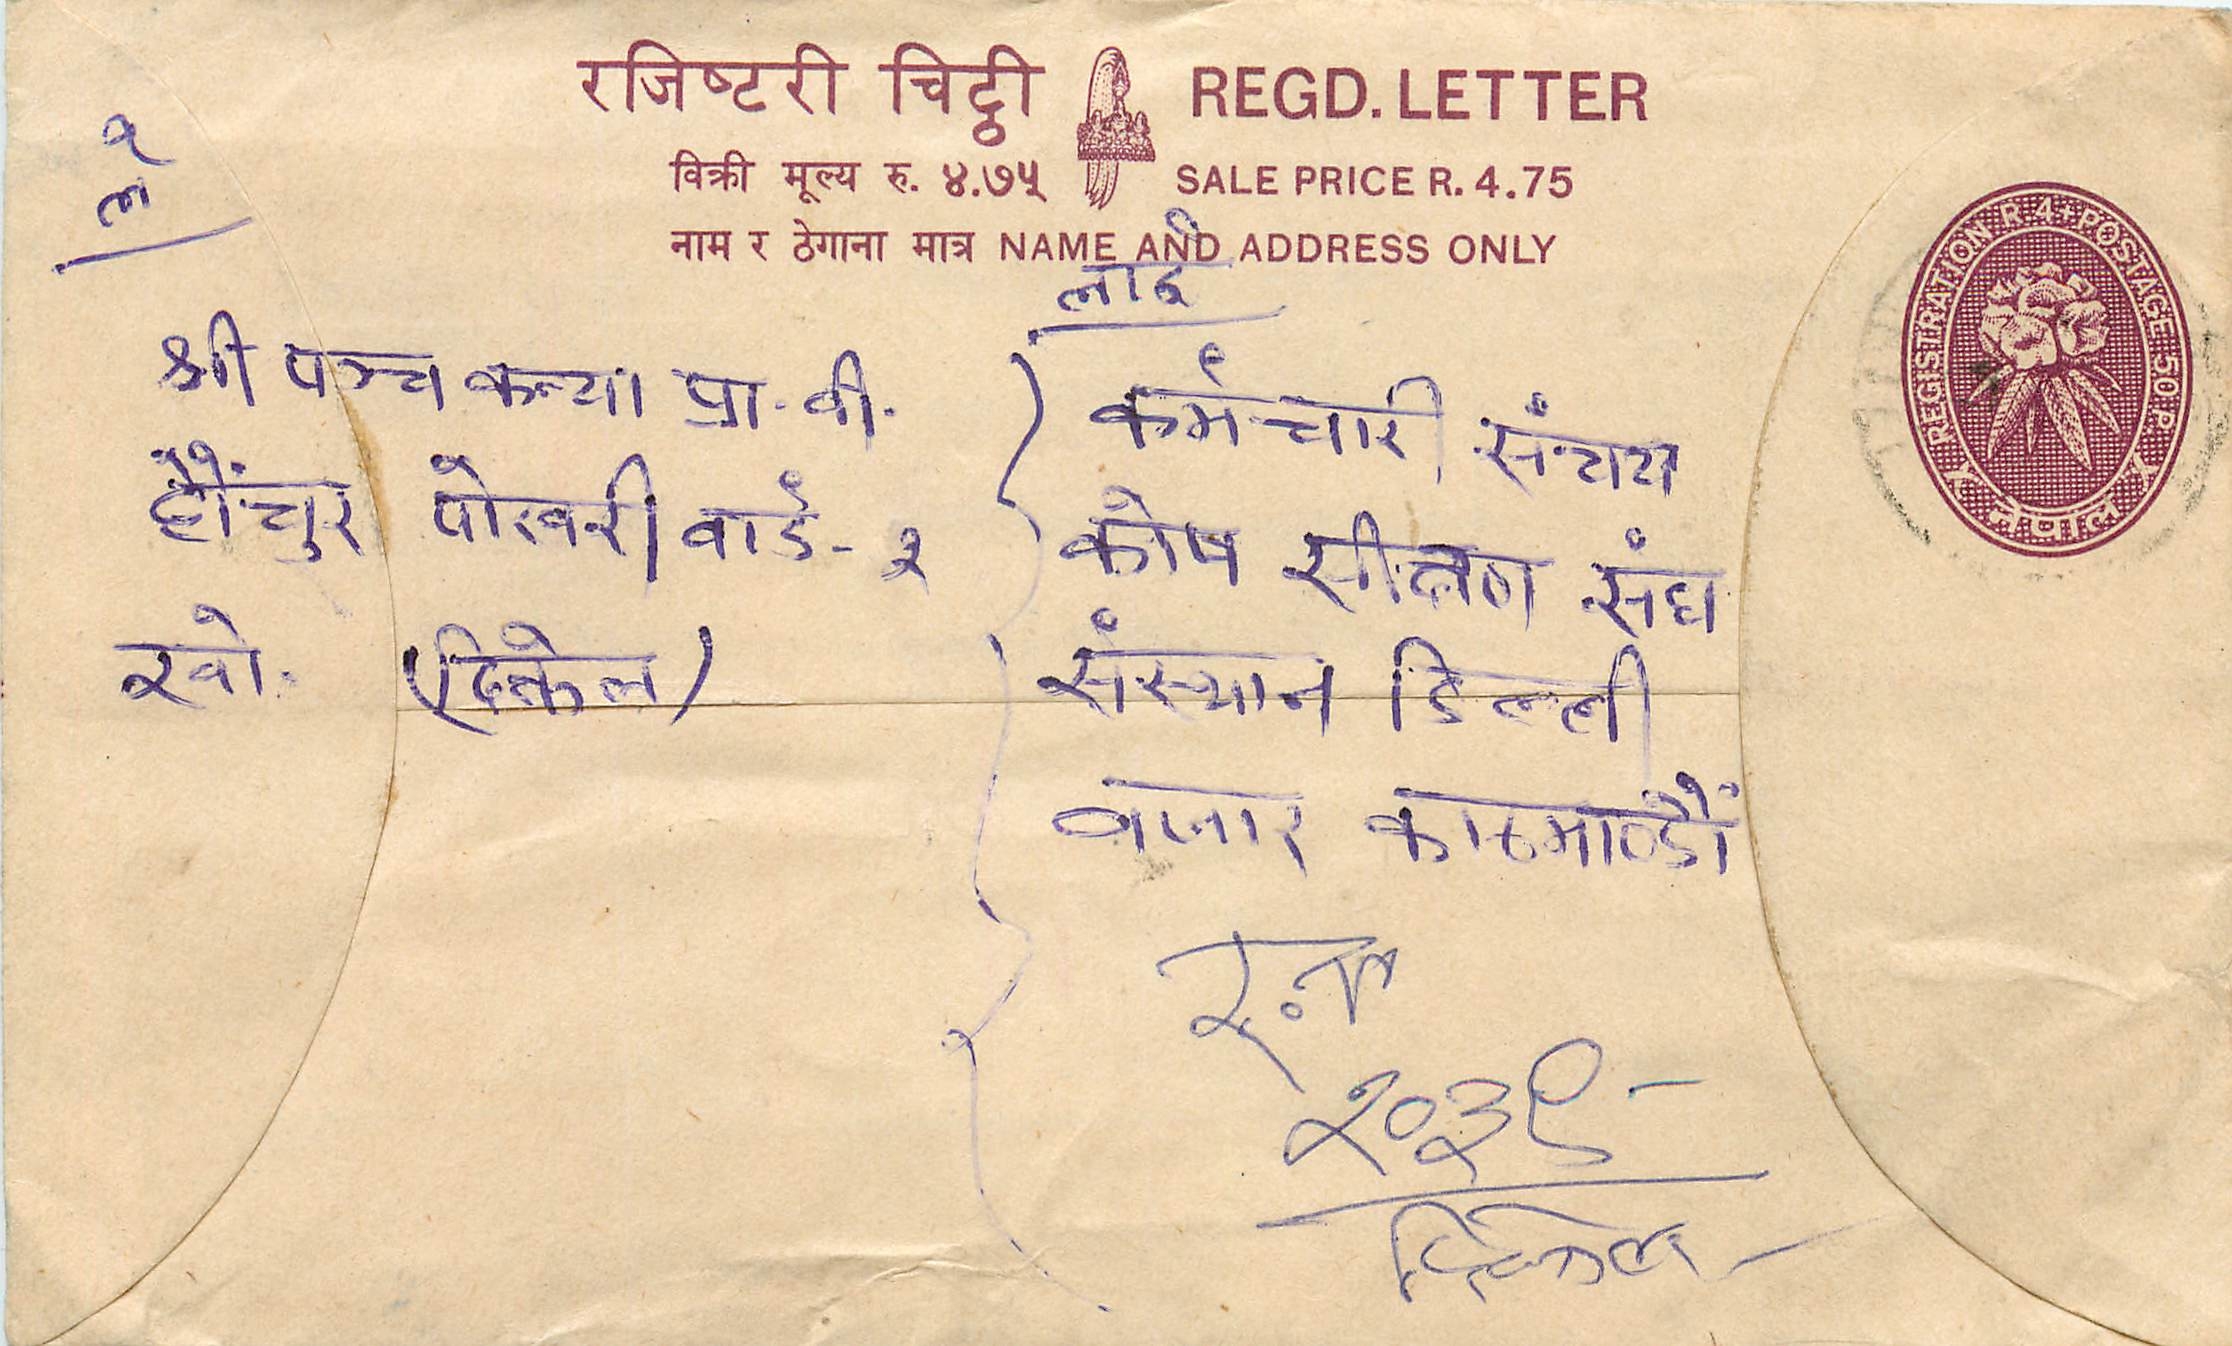 रजिष्टरी चिट्ठी REGD. LETTER
विक्री मूल्य रु. ४.७५ SALE PRICE R. 4.75
नाम र ठेगाना मात्र NAME AND ADDRESS ONLY
REGISTRATION R 4+POSTAGE 50 P.
नेपाल
श्री पञ्च कन्या प्रा. वी.
हौंचुर पोखरी वार्ड - २
खो.
लाई
कर्मचारी संचय
कोष
संस्थान डिल्ली
बजार काठमाण्डौं
र.नं
२०३९